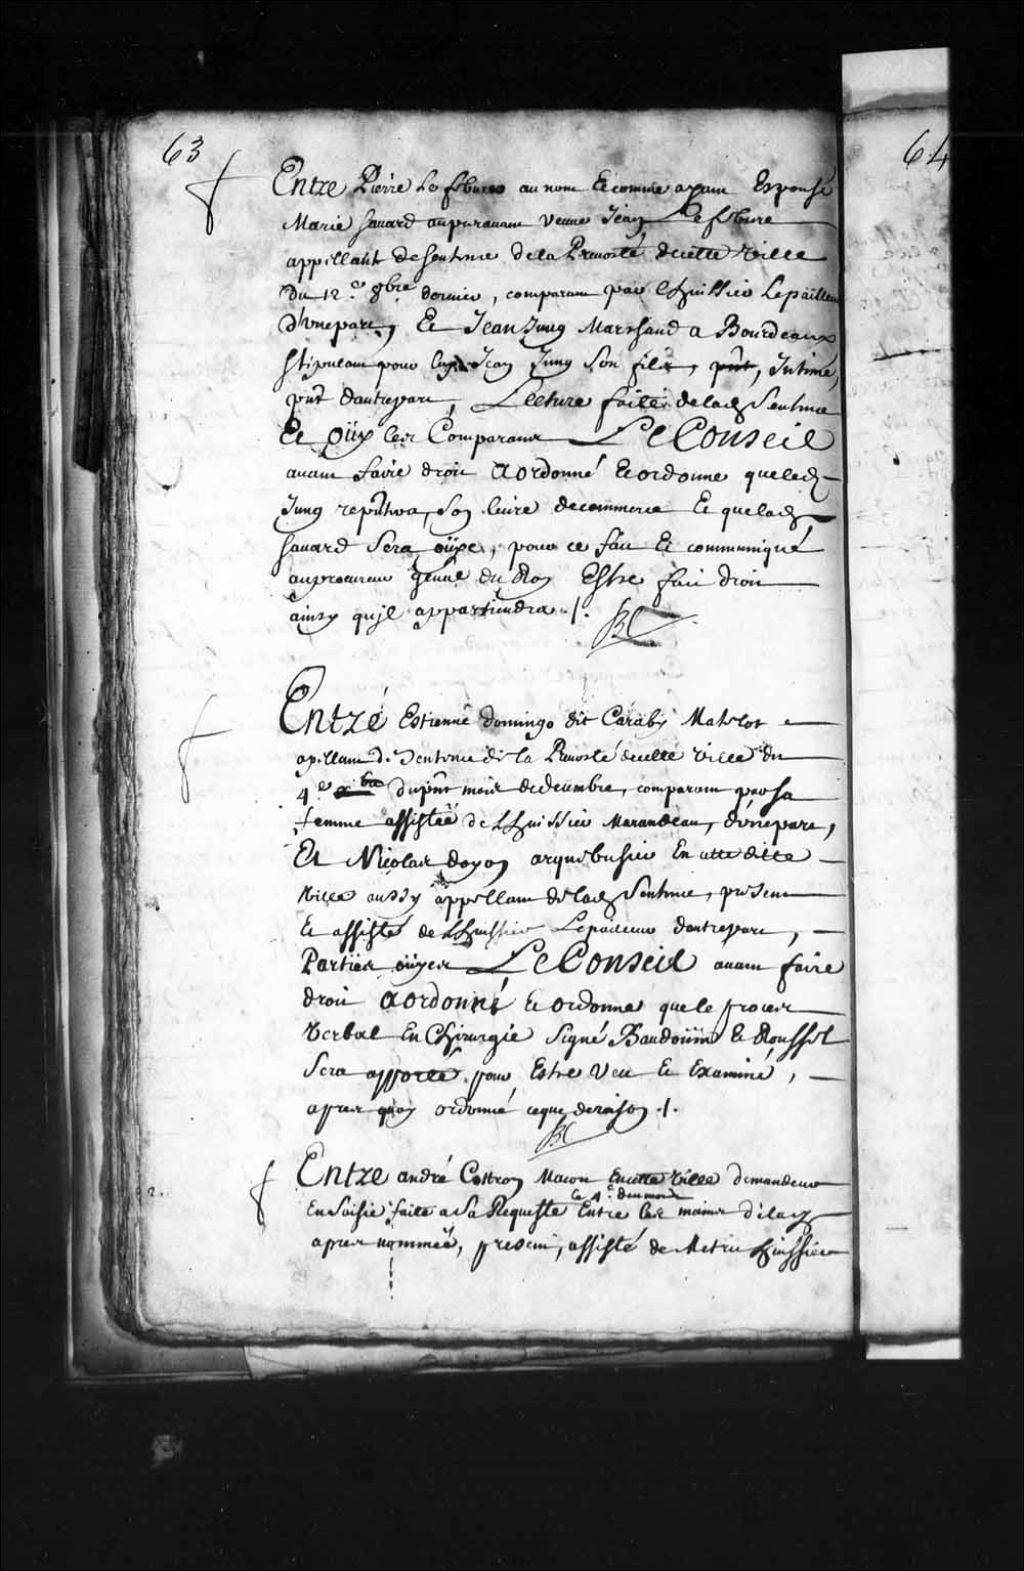 63
64
Entre Pierre Le febure au nom & comme ayant Espousé
Marie sauard auparauant veuue Jean Lefebure
appillant de sentence dela Preuosté decette ville
du 12.e 8bre dernier, comparant par Lhuissier Lepailleur
d'vnepart, Et Jean Jung Marchand a Bourdeaux
stipulant pour luy Jean Jung son fils, pnt, Intimé,
pnt dautrepart, Lecture faite deladt Sentence
Et oüy les Comparans Le Conseil
auant faire droit a ordonné & ordonne queledt
Jung repntra son liure decommerce Et queladt
sauard sera oüye, pour ce fait & communiqué
auprocureur gñal du Roy Estre fait droit
ainsy qu'jl appartiendra ./.
Entré Estienne domingo dit Caraby Matelot
apillant de Sentence de la Preuosté decette ville du
4.e bre dupnt mois dedecembre, comparant par sa
femme assistée de Lhuissier Marandeau, d'vnepart,
Et Nicolas doyon arquebusier En cette ditte
Ville aussy appellant de ladt Sentence, present
& assisté de Lhuissier Lepailleur dautrepart,
Parties oüyes Le Conseil auant faire
droit a ordonné & ordonne que le procez
verbal En Chirurgie signé Baudoüin & Roussel
sera apporté pour Estre veu & Examiné,
apres quoy ordonné ceque deraison ./.
Entre andré Costron Macon Encette ville demandeur
le 4.e dumois
En saisie faite a sa Requeste Entre les mains delad
apres nommée, present, assisté de Metru huissier